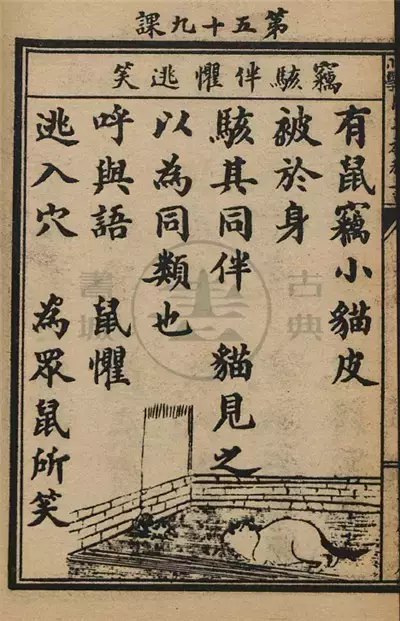 第五十九課
竊駭伴懼逃笑
有鼠竊小貓皮
被於身
駭其同伴　貓見之
以為同類也
呼與語　鼠懼
逃入穴　為眾鼠所笑
古典
書城